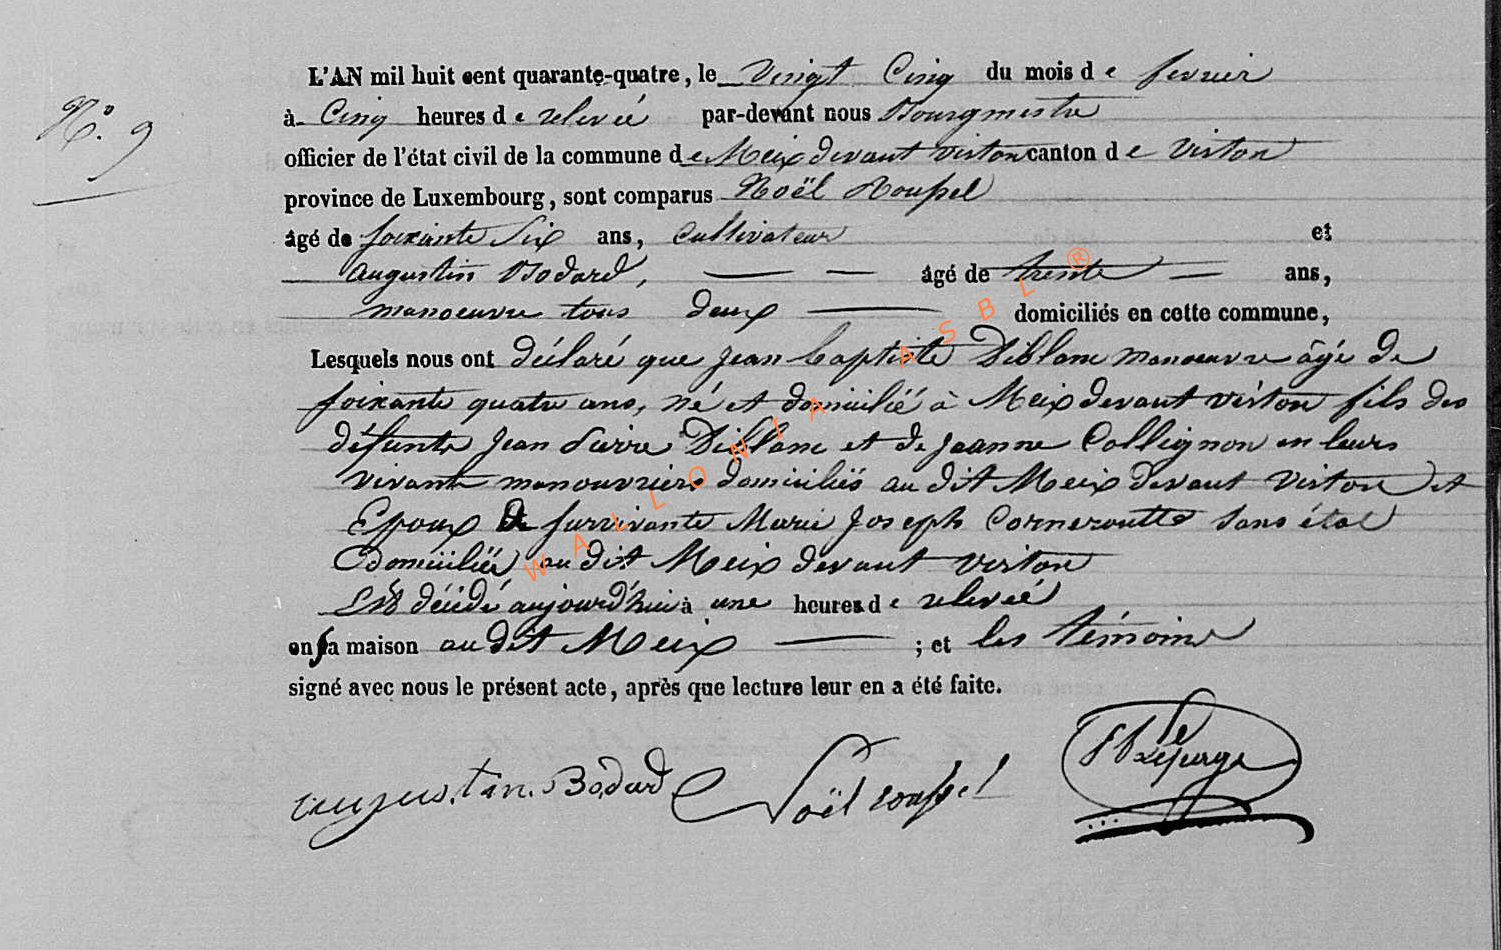 N.° 9
L'AN mil huit cent quarante-quatre, le vingt Cinq du mois de fevrier
à Cinq heures de relevée par-devant nous Bourgmestre
officier de l'état civil de la commune de Meix devant virton canton de virton
province de Luxembourg, sont comparus Noël Roussel
âgé de soixante Six ans, Cultivateur et
Augustin Bodard, âgé de trente ans,
manoeuvre tous deux domiciliés en cette commune,
Lesquels nous ont déclaré que Jean baptiste Diblanc manoeuvre âgé de
soixante quatre ans, né et domicilié à Meix devant virton fils des
défunts Jean Pierre Diblanc et de Jeanne Collignon en leurs
vivants manouvriers domiciliés au dit Meix devant virton et
Epoux de survivante Marie Joseph Corneroutte sans état
Domiciliée au dit Meix devant virton
Est décédé aujourd'hui à une heures de relevée
en sa maison au dit Meix ; et les témoins
signé avec nous le présent acte, après que lecture leur en a été faite.
augustin Bodard Noël roussel
WALLONIA ASBL ®